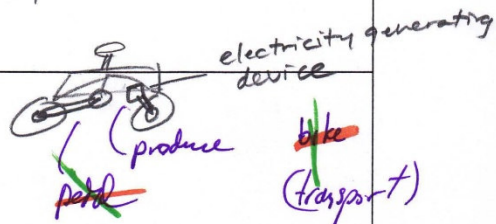 electricity generating
device
produce
bike
(transport)